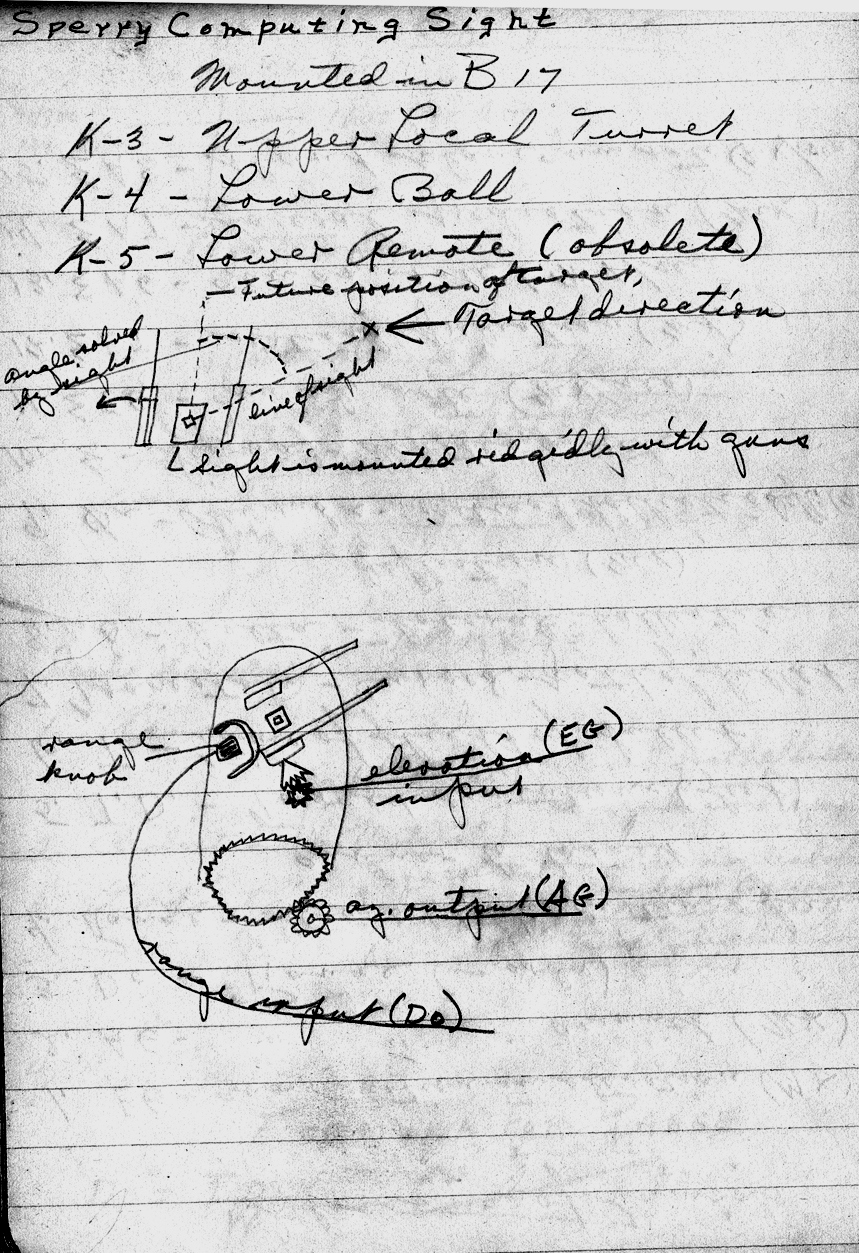 Sperry Computing Sight
Mounted in B 17
K-3 - Upper Local Turret
K-4 - Lower Ball
K-5 - Lower Remote (obsolete)
Future position of target,
Target direction
angle solved
by sight
line of sight
Sight is mounted ridgedly with guns
range
knob
elevation (EG)
input
az. output (AG)
range input (Do)